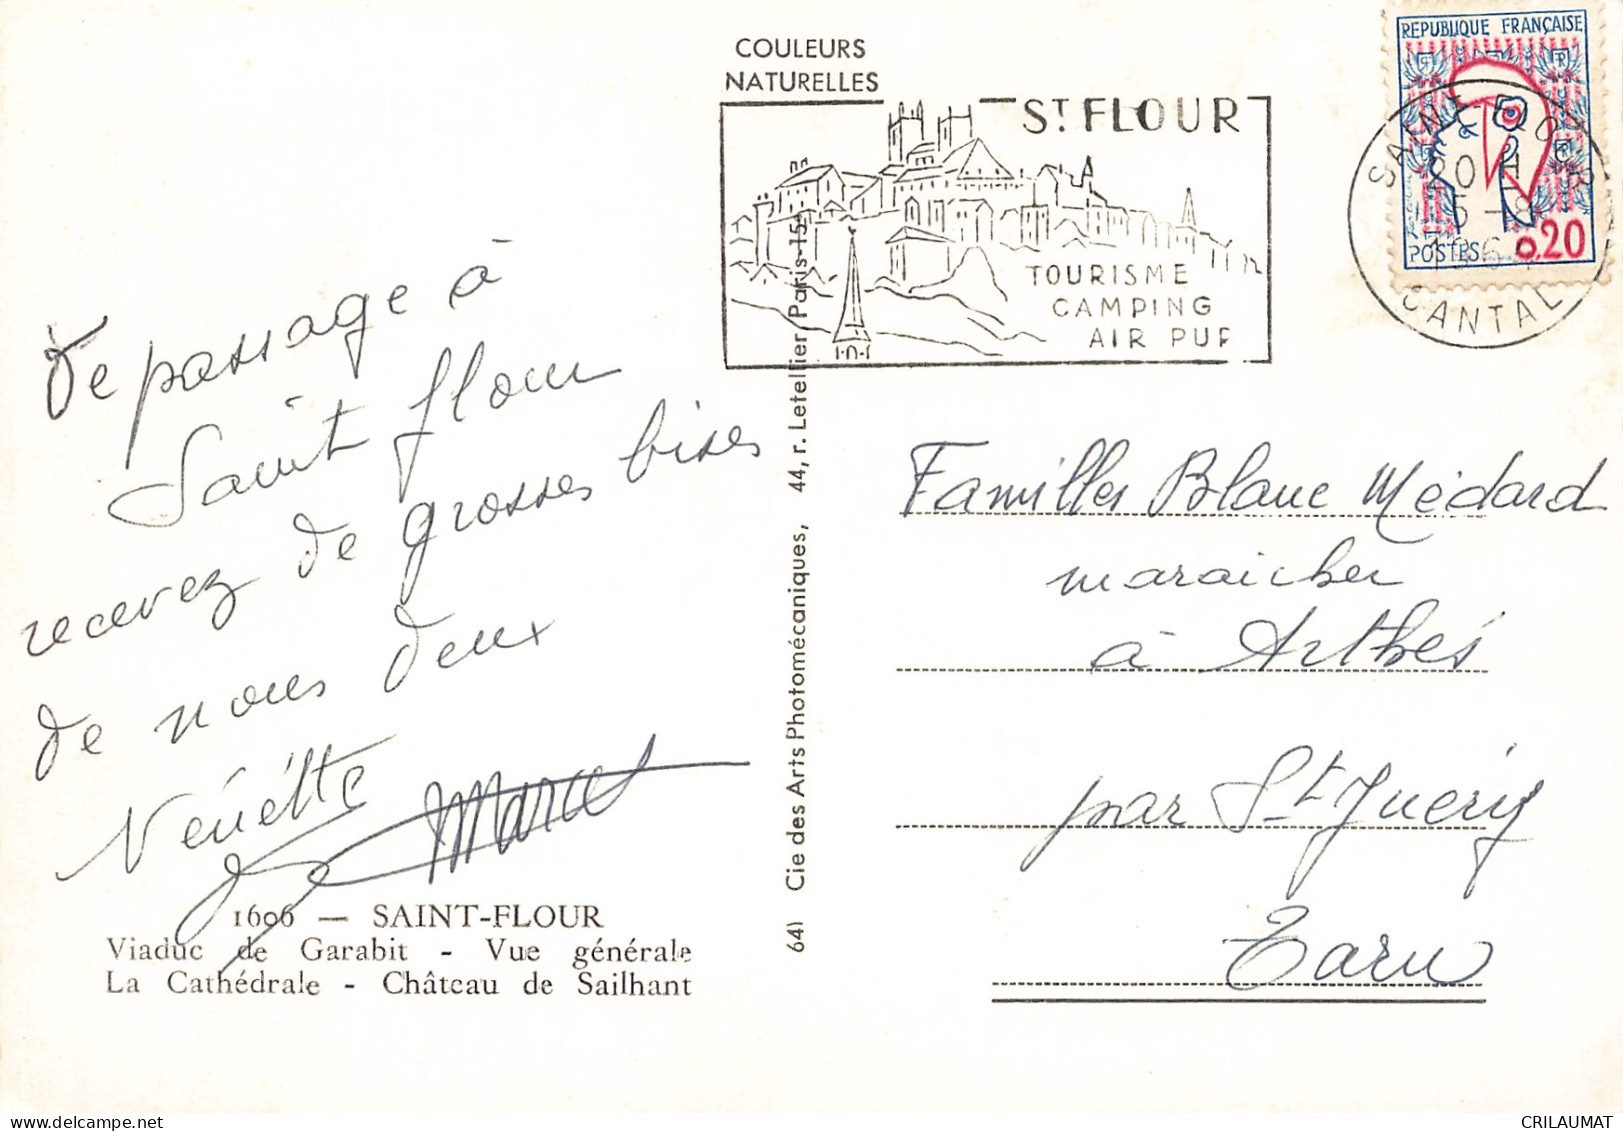 COULEURS
NATURELLES
ST FLOUR
TOURISME
CAMPING
AIR PUR
REPUBLIQUE FRANÇAISE
POSTES 0,20
SAINT-FLOUR
20 H
5-8
CANTAL
De passage à
Saint flour
recevez de grosses bises
de nous deux
Vénétte
Marcel
1606 — SAINT-FLOUR
Viaduc de Garabit - Vue générale
La Cathédrale - Château de Sailhant
641 Cie des Arts Photomécaniques, 44, r. Letellier, Paris-15e
Familles Blanc Médard
maraicher
à Arthés
par St Juéry
Tarn
CRILAUMAT